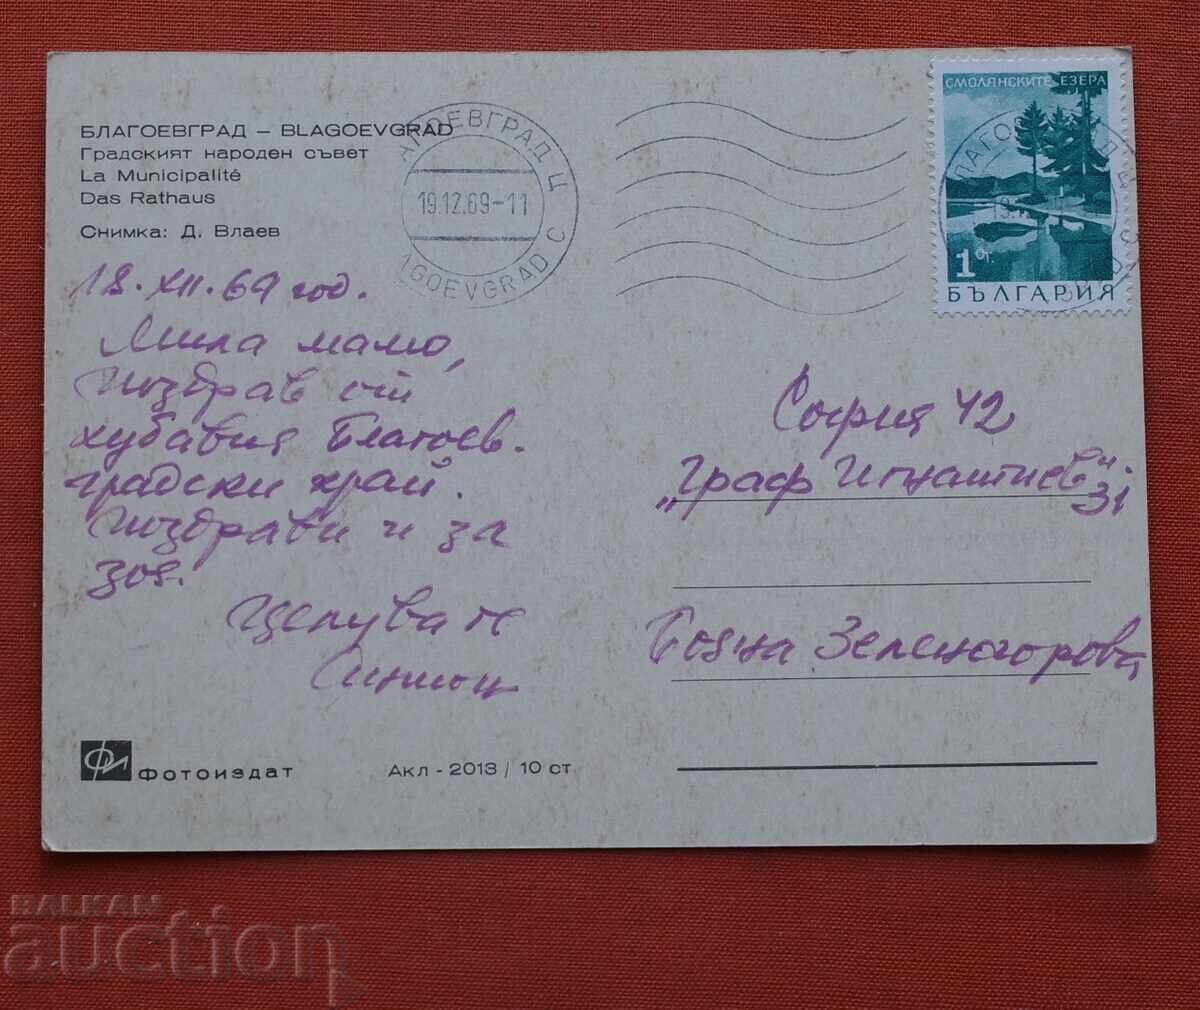 БЛАГОЕВГРАД – BLAGOEVGRAD
Градският народен съвет
La Municipalité
Das Rathaus
Снимка: Д. Влаев
АГОЕВГРАД Ц
19.12.69-11
AGOEVGRAD C
СМОЛЯНСКИТЕ ЕЗЕРА
1 ст.
БЪЛГАРИЯ
18.XII.69 год.
Мила мамо,
Поздрав от
хубавия Благоев-
градски край.
Поздрави и за
Зоя.
Целувам те
София 42
„Граф Игнатиев" 31
Бояна Зеленогорова
Фотоиздат
Акл - 2013 / 10 ст.
BALKAN
auction